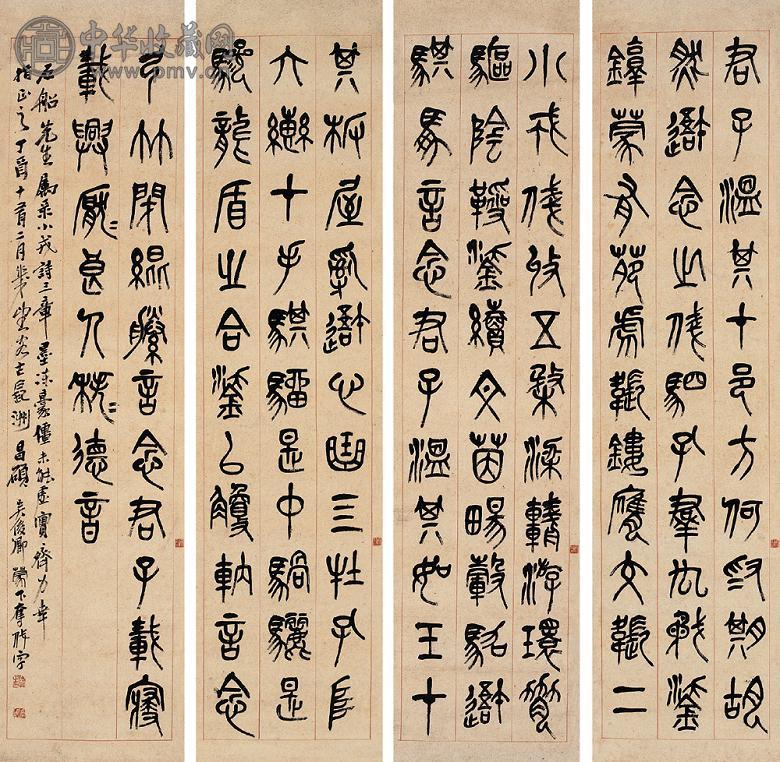 君子溫其在邑方何為期胡
然吾念之俴駟孔群厹矛鋈
錞蒙伐有苑虎韔鏤膺交韔二
小戎俴收五楘梁輈游環脅
驅陰靷鋈續文茵暢轂駕吾
騏馵言念君子溫其如玉在
其板屋亂吾心曲四牡孔阜
六轡在手騏駵是中騧驪是
驂龍盾之合鋈以觼軜言念
弓竹閉緄縢言念君子載寢
載興厭=良人秩=德音
石船先生屬录小戎詩三章墨凍豪僵未能虛實齊力幸
指正之丁酉十有二月 昌碩吳俊卿
中华收藏网
www.pmv.cn